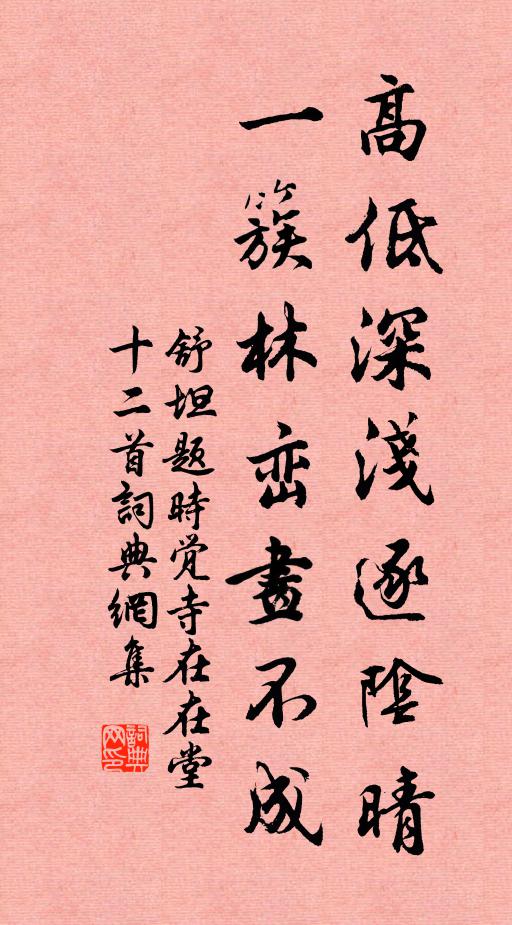 高低深淺逐陰晴
一簇林巒畫不成
舒坦题時觉寺在在堂
十二首詞典網集
詞典
网印